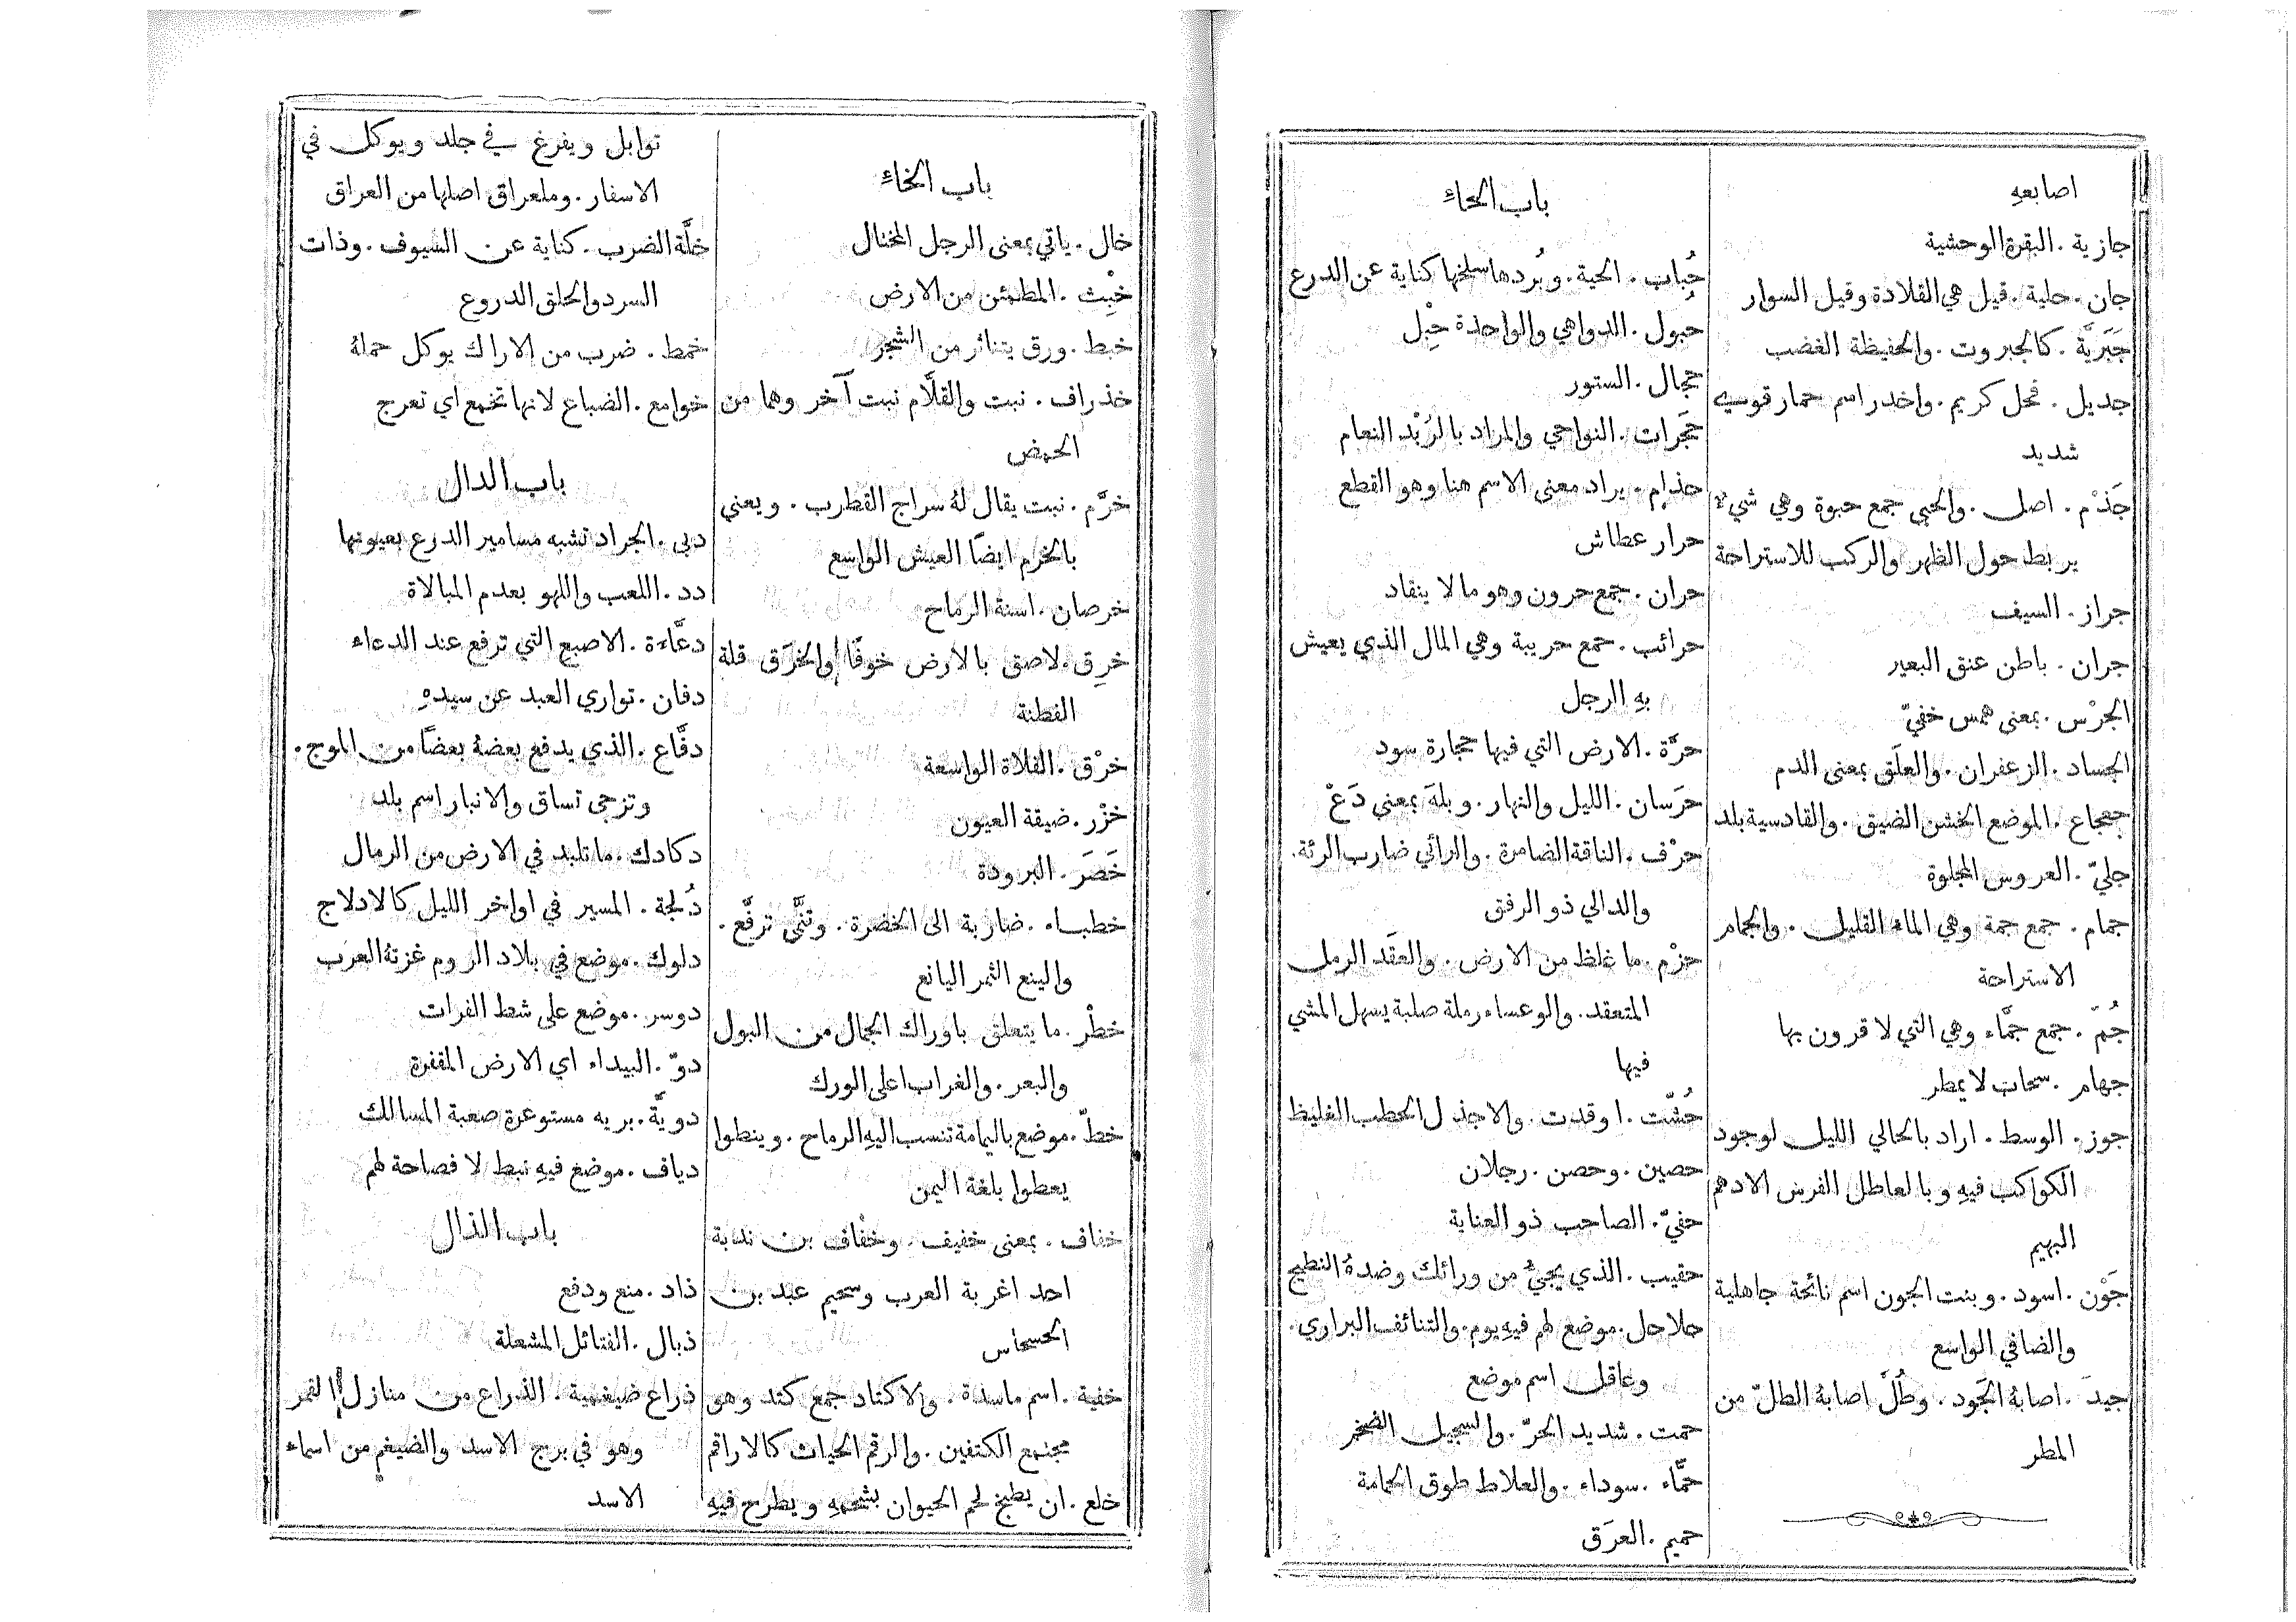 اصابعهِ
جازية . البقرة الوحشية
جان . حلية . قيل هي القلادة وقيل السوار
جَبَريَّة . كالجبروت . والحفيظة الغضب
جديل . فحل كريم . واخدر اسم حمار قوسهِ
شديد
جَذْم . اصل . والحبي جمع حبوة وهي شيءٌ
يربط حول الظهر والركب للاستراحة
جراز . السيف
جران . باطن عنق البعير
الجرْس . بمعنى همس خفيّ
الجساد . الزعفران . والعلَق بمعنى الدم
جعجاع . الموضع الخشن الضيق . والقادسية بلد
جليّ . العروس المجلوة
جمام . جمع جمة وهي الماء القليل . والجمام
الاستراحة
جُمّ . جمع جمَّاء وهي التي لا قرون بها
جهام . سحاب لا يمطر
جوز . الوسط . اراد بالحالي الليل لوجود
الكواكب فيهِ وبالعاطل الفرس الادهم
البهيم
جَوْن . اسود . وبنت الجون اسم نائحة جاهلية
والضافي الواسع
جيدَ . اصابهُ الجَود . وطُلَّ اصابهُ الطلّ من
المطر
باب الحاءِ
حُباب . الحية . وبُردها سلخها كناية عن الدرع
حبول . الدواهي والواحدة حِبْل
حجال . الستور
حَجَرات . النواحي والمراد بالرُبْد النعام
حذام . يراد معنى الاسم هنا وهو القطع
حرار عطاش
حران . جمع حرون وهو ما لا ينقاد
حرائب . جمع حريبة وهي المال الذي يعيش
بهِ الرجل
حرَّة . الارض التي فيها حجارة سود
حرَسان . الليل والنهار . وبلهَ بمعنى دَعْ
حرْف . الناقة الضامرة . والرائي ضارب الرئة .
والدالي ذو الرفق
حزْم . ما غلظ من الارض . والعقَد الرمل
المتعقد . والوعساء رملة صلبة يسهل المشي
فيها
حُشّت . اوقدت . والاجذل الحطب الغليظ
حصين . وحصن . رجلان
حفيّ . الصاحب ذو العناية
حقيب . الذي يجيءُ من ورائك وضدهُ النطيح
حلاحل . موضع لهم فيهِ يوم . والتنائف البراري .
وعاقل اسم موضع
حمت . شديد الحرّ . والسجيل الضخم
حمَّاء . سوداء . والعلاط طوق الحمامة
حميم . العرَق
باب الخاءِ
خال . ياتي بمعنى الرجل المختال
خبْث . المطمئن من الارض
خبط . ورق يتناثر من الشجر
خذراف . نبت والقلَّام نبت آخر وهما من
الحمض
خرَّم . نبت يقال لهُ سراج القطرب . ويعني
بالخرم ايضًا العيش الواسع
خرصان . اسنة الرماح
خرِق . لاصق بالارض خوفًا والخرَق قلة
الفطنة
خرْق . الفلاة الواسعة
خزْر . ضيقة العيون
خَصَرَ . البرودة
خطباء . ضاربة الى الخضرة . وتنَّى ترفَّع .
والينع الثمر اليانع
خطْر . ما يتعلق باوراك الجمال من البول
والبعر . والغراب اعلى الورك
خطّ . موضع باليمامة تنسب اليهِ الرماح . وينطوا
يعطوا بلغة اليمن
خفاف . بمعنى خفيف . وخفْاف بن ندبة
احد اغربة العرب وسحيم عبد بن
الحسحاس
خفية . اسم ماسدة . والاكتاد جمع كتد وهو
مجتمع الكتفين . والرقم الحيات كالاراقم
خلع . ان يطبخ لحم الحيوان بشحمهِ ويطرح فيهِ
توابل ويفرغ في جلد ويوكل في
الاسفار . وملعراق اصلها من العراق
خلَّة الضرب . كناية عن السيوف . وذات
السرد والحلق الدروع
خمط . ضرب من الاراك يوكل حملهُ
خوامع . الضباع لانها تخمع اي تعرج
باب الدال
دبى . الجراد تشبه مسامير الدرع بعيونها
دد . اللعب واللهو بعدم المبالاة
دعَّاءة . الاصبع التي ترفع عند الدعاء
دفان . تواري العبد عن سيدهِ
دفَّاع . الذي يدفع بعضهُ بعضًا من الموج .
وتزجى تساق والانبار اسم بلد
دكادك . ما تلبد في الارض من الرمال
دُلجة . المسير في اواخر الليل كالادلاج
دلوك . موضع في بلاد الروم غزتهُ العرب
دوسر . موضع على شط الفرات
دوّ . البيداء اي الارض المقفرة
دويَّة . بريه مستوعرة صعبة المسالك
دياف . موضع فيهِ نبط لا فصاحة لهم
باب الذال
ذاد . منع ودفع
ذبال . الفتائل المشعلة
ذراع ضيغمية . الذراع من منازل القمر
وهو في برج الاسد والضيغم من اسماء
الاسد